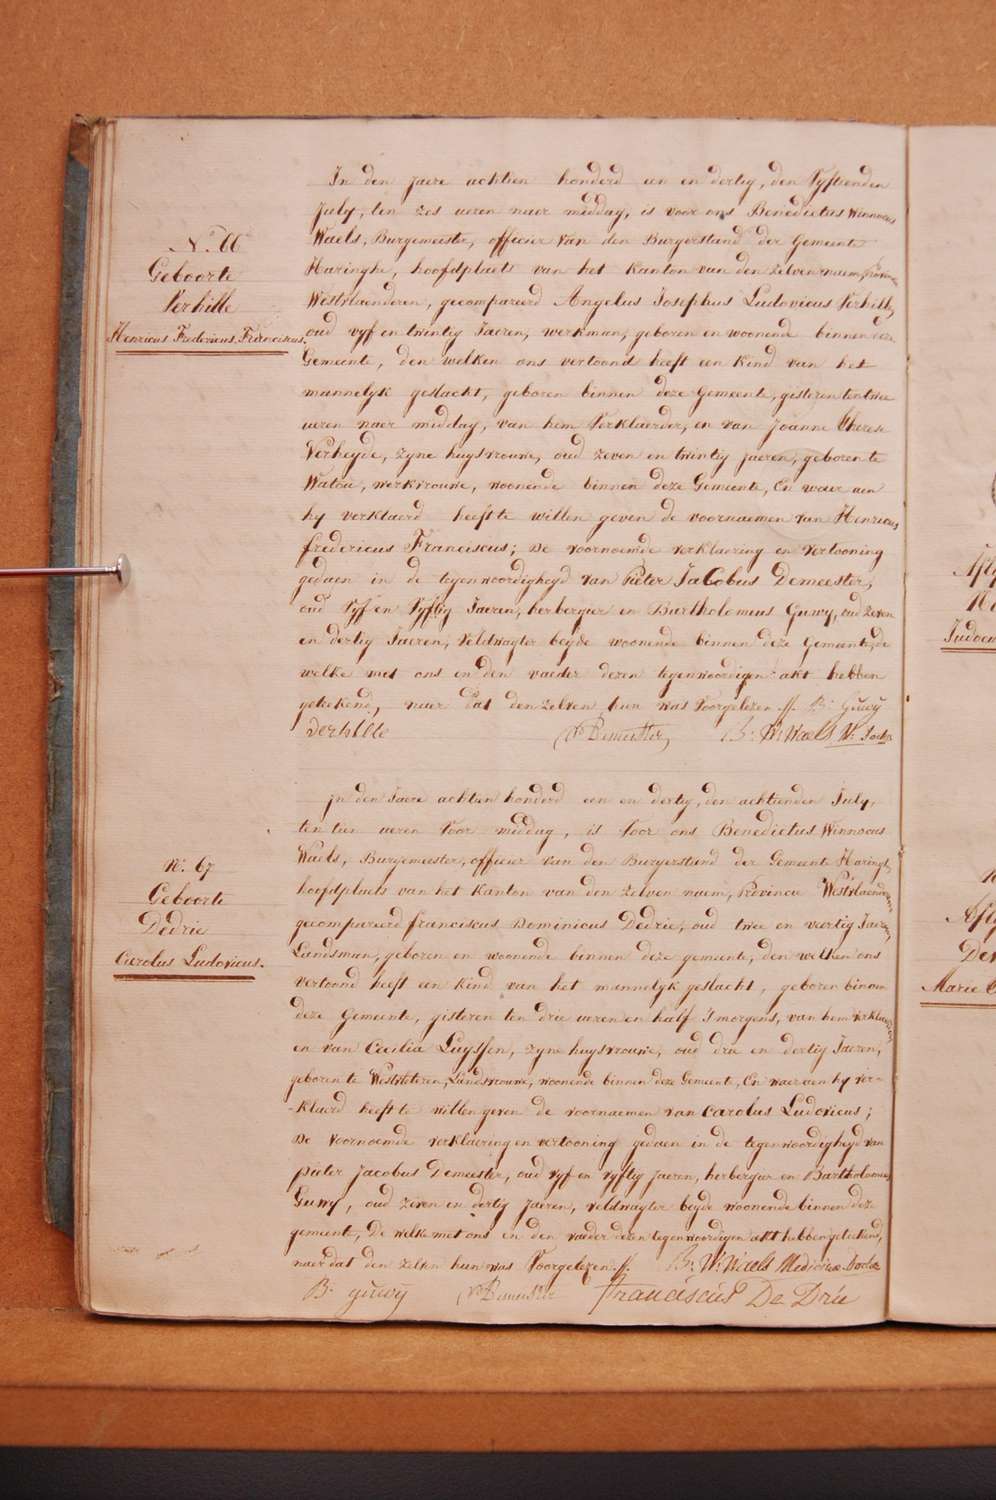 N.° 66
Geboorte
Verhille
Henricus Fredericus Franciscus.
In den jaere achtien honderd een en dertig, den Vyftienden
July, ten zes ueren naer middag, is voor ons Benedictus Winnocus
Waels, Burgemeester, officier van den Burgerstand der Gemeente
Haringhe, hoofdplaets van het Kanton van den zelven naem, Provincie
Westvlaenderen, gecompareerd Angelus Josephus Ludovicus Verhille,
oud vyf en twintig Jaeren, werkman, geboren en woonende binnen deze
Gemeente, den welken ons vertoond heeft een Kind van het
mannelyk geslacht, geboren binnen deze Gemeente, gisteren ten twee
ueren naer middag, van hem Verklaerder, en van Joanne Therese
Verheyde, zyne huysvrouwe, oud zeven en twintig jaeren, geboren te
Watou, werkvrouwe, woonende binnen deze Gemeente, En waer aen
hy verklaerd heeft te willen geven de voornaemen van Henricus
fredericus Franciscus; De voornoemde verklaering en vertooning
gedaen in de tegenwoordigheyd van Pieter Jacobus Demeester,
oud Vyf en Vyftig Jaeren, herbergier en Bartholomeus Guwy, oud zeven
en dertig Jaeren, Veldwagter beyde woonende binnen deze Gemeente, de
welke met ons en den vaeder dezen tegenwoordigen akt hebben
getekend, naer dat den zelven hun was Voorgelezen ./. B: Guwy
Verhille Demeester B: W: Waels M: Doctr
N.° 67
Geboorte
Dedrie
Carolus Ludovicus.
In den Jaere achtien honderd een en dertig, den achtienden July,
ten tien ueren Voor middag, is Voor ons Benedictus Winnocus
Waels, Burgemeester, officier van den Burgerstand der Gemeente Haringhe,
hoofdplaets van het Kanton van den zelven naem, Provincie Westvlaenderen
gecompareerd franciscus Dominicus Dedrie, oud twee en veertig Jaeren,
Landsman, geboren en woonende binnen deze gemeente, den welken ons
vertoond heeft een Kind van het mannelyk geslacht, geboren binnen
deze Gemeente, gisteren ten drie ueren en half s'morgens, van hem verklaerder,
en van Cecilia Luyssen, zyne huysvrouwe, oud drie en dertig Jaeren,
geboren te Westvleteren, Landsvrouwe, woonende binnen deze Gemeente, En waer aen hy ver-
-klaerd heeft te willen geven de voornaemen van Carolus Ludovicus;
De voornoemde verklaering en vertooning gedaen in de tegenwoordigheyd van
pieter Jacobus Demeester, oud vyf en vyftig jaeren, herbergier en Bartholomeus
Guwy, oud zeven en dertig jaeren, veldwagter beyde woonende binnen deze
gemeente, De welke met ons en den vaeder dezen tegenwoordigen akt hebben getekend,
naer dat den zelven hun was Voorgelezen ./. B: W: Waels Medicinae Doctor
B. guwy Demeester Franciscus De Drie